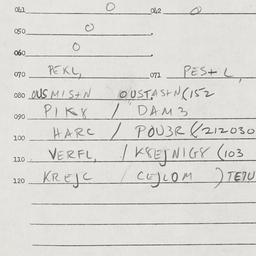 041 0 042 0
050 0
060 0
070 PEKL, 071 PES+L,
080 OUSMIS+N OUSTAS+N(152
090 PIK8 / DAM3
100 HARC / POU3R (212030
110 VERFL, / K8EJNIG8 (103
120 KREJC / CEJLOM ) TE7U